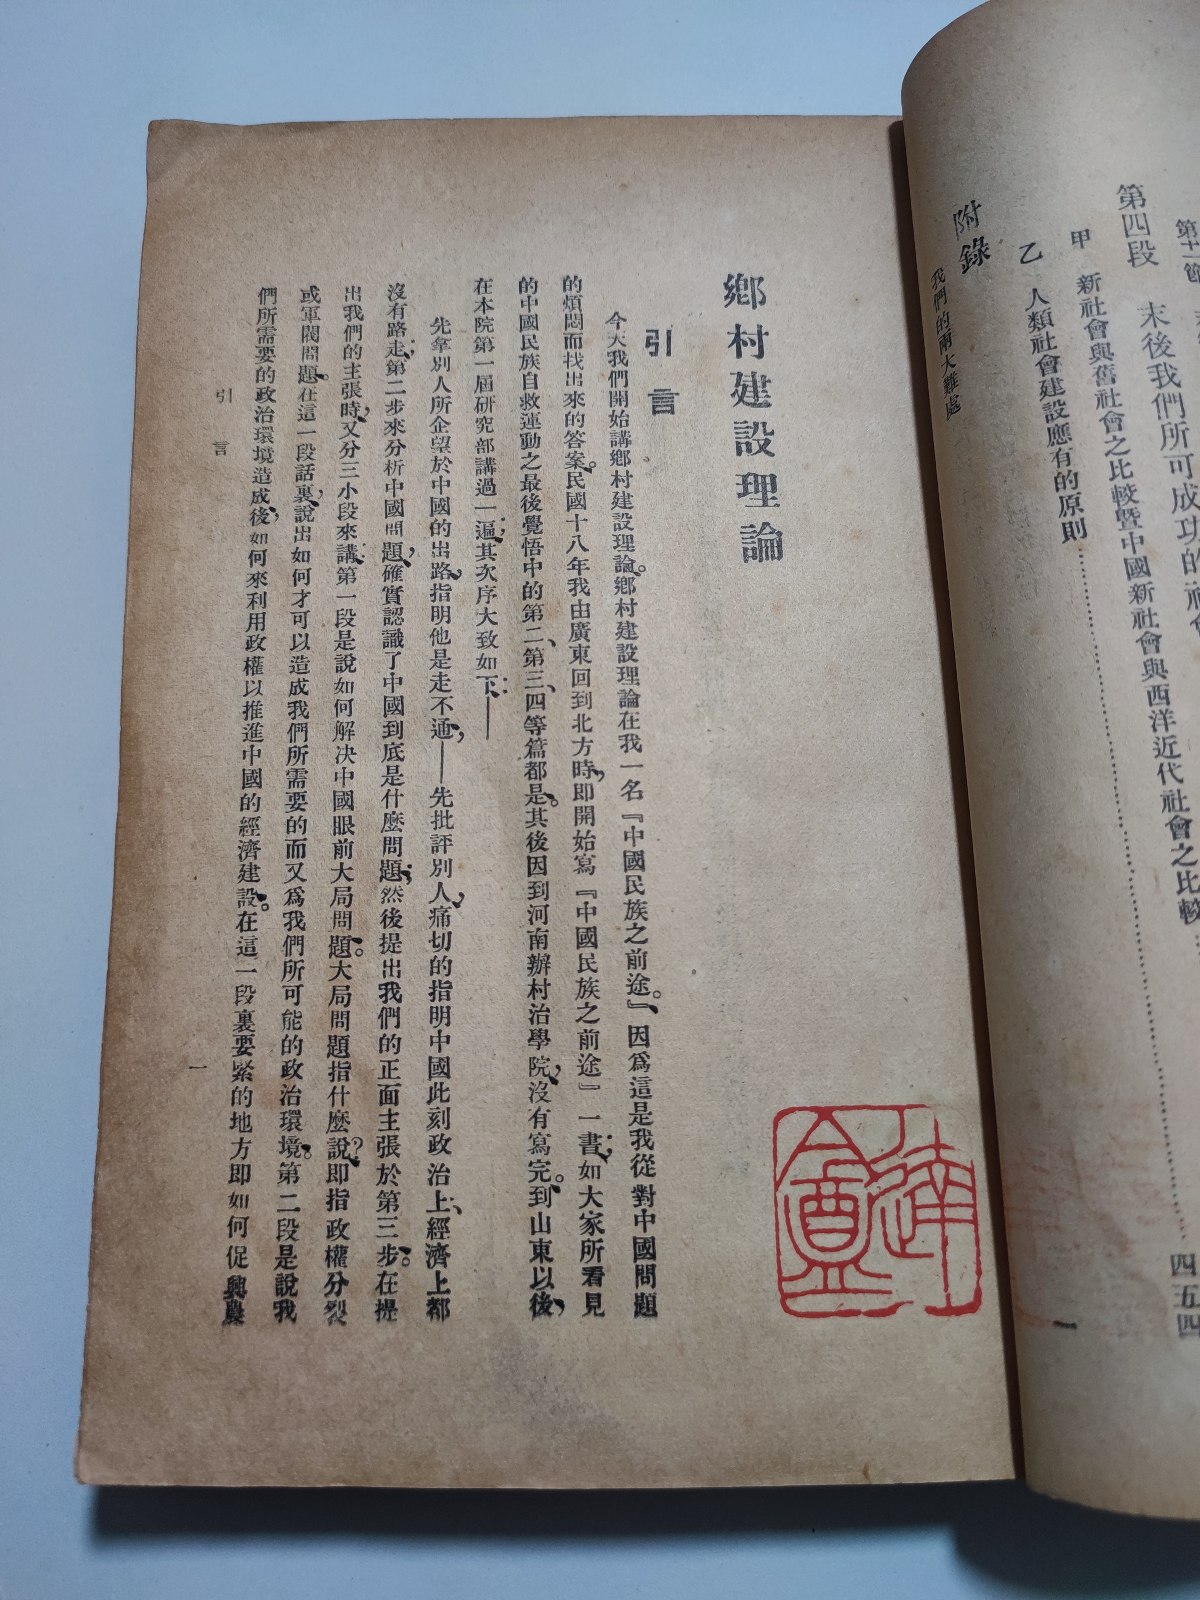 第四段　末後我們所可成功的社會
甲　新社會與舊社會之比較暨中國新社會與西洋近代社會之比較……四五四
乙　人類社會建設應有的原則……
附錄
我們的兩大難處
一
鄉村建設理論
引言
今天我們開始講鄉村建設理論。鄉村建設理論在我一名『中國民族之前途。』因爲這是我從對中國問題
的煩悶而找出來的答案。民國十八年我由廣東回到北方時，即開始寫『中國民族之前途』一書；如大家所看見
的中國民族自救運動之最後覺悟中的第二、第三、四等篇都是。其後因到河南辦村治學院，沒有寫完。到山東以後，
在本院第一屆研究部講過一遍；其次序大致如下：——
先拿別人所企望於中國的出路，指明他是走不通，——先批評別人，痛切的指明中國此刻政治上、經濟上都
沒有路走；第二步來分析中國問題，確實認識了中國到底是什麼問題；然後提出我們的正面主張於第三步。在提
出我們的主張時，又分三小段來講：第一段是說如何解决中國眼前大局問題。大局問題指什麼說？即指政權分裂
或軍閥問題。在這一段話裏，說出如何才可以造成我們所需要的而又爲我們所可能的政治環境。第二段是說我
們所需要的政治環境造成後，如何來利用政權以推進中國的經濟建設。在這一段裏要緊的地方即如何促興農
引言
一